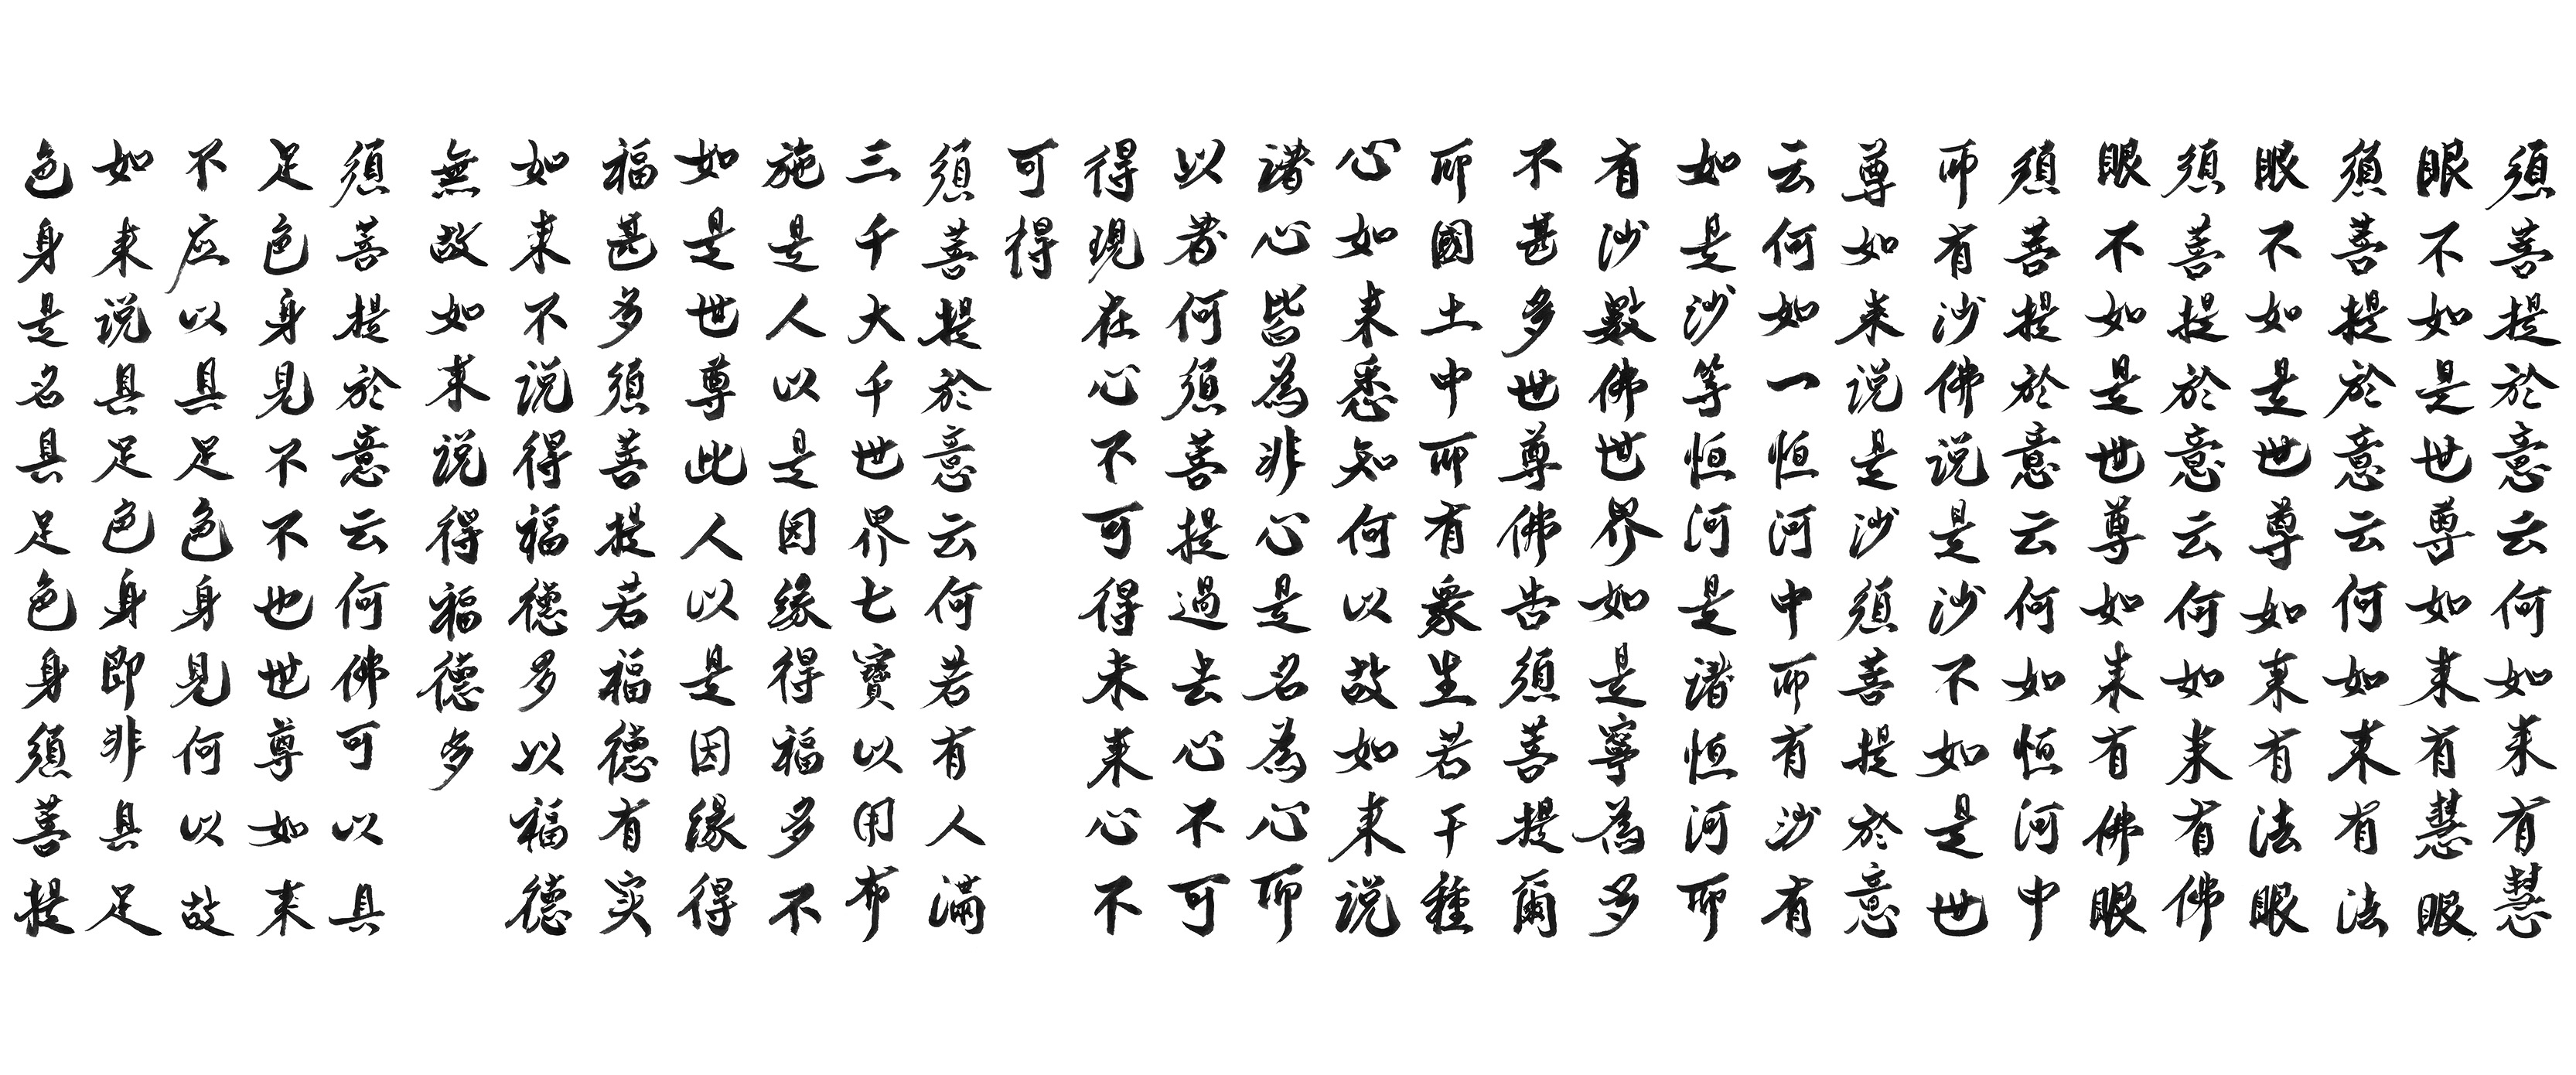 須菩提於意云何如来有慧
眼不如是世尊如来有慧眼
須菩提於意云何如来有法
眼不如是世尊如来有法眼
須菩提於意云何如来有佛
眼不如是世尊如来有佛眼
須菩提於意云何如恒河中
所有沙佛说是沙不如是世
尊如来说是沙須菩提於意
云何如一恒河中所有沙有
如是沙等恒河是諸恒河所
有沙數佛世界如是寧為多
不甚多世尊佛告須菩提爾
所國土中所有眾生若干種
心如来悉知何以故如来说
諸心皆為非心是名為心所
以者何須菩提過去心不可
得現在心不可得未来心不
可得
須菩提於意云何若有人滿
三千大千世界七寶以用布
施是人以是因緣得福多不
如是世尊此人以是因緣得
福甚多須菩提若福德有实
如来不说得福德多以福德
無故如来说得福德多
須菩提於意云何佛可以具
足色身見不不也世尊如来
不应以具足色身見何以故
如来说具足色身即非具足
色身是名具足色身須菩提